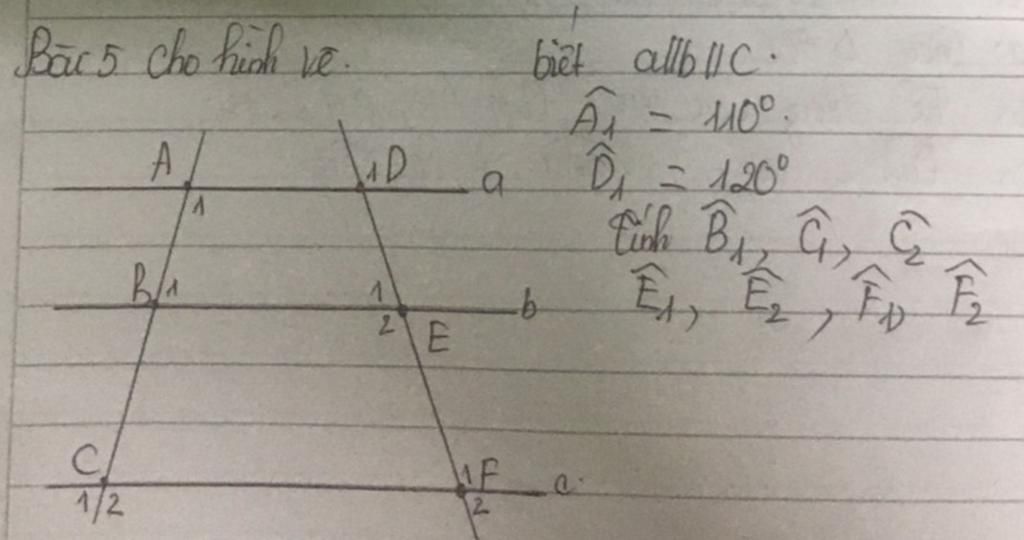 Bài 5 Cho hình vẽ. biết a//b//c.
Â1 = 110°.
D̂1 = 120°
tính B̂1, Ĉ1, Ĉ2
Ê1, Ê2, F̂1, F̂2
A 1D a
1
B 1 1 b
2 E
C 1F c
1/2 2